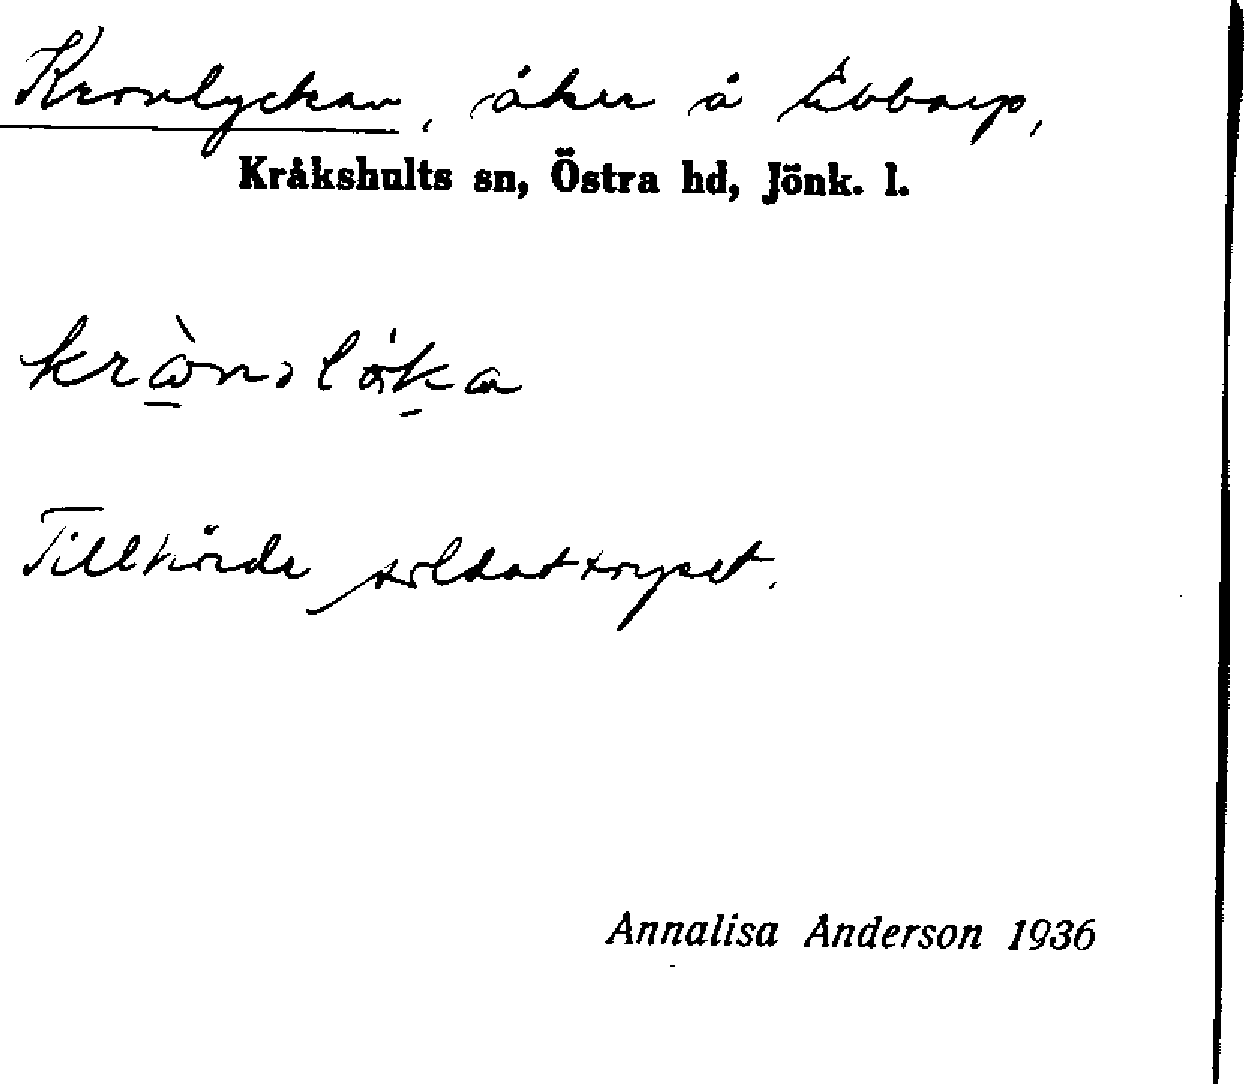 Kronlyckan, åker å Ebbarp,
Kråkshults sn, Östra hd, Jönk. l.
Tillhörde soldattorpet.
Annalisa Anderson 1936